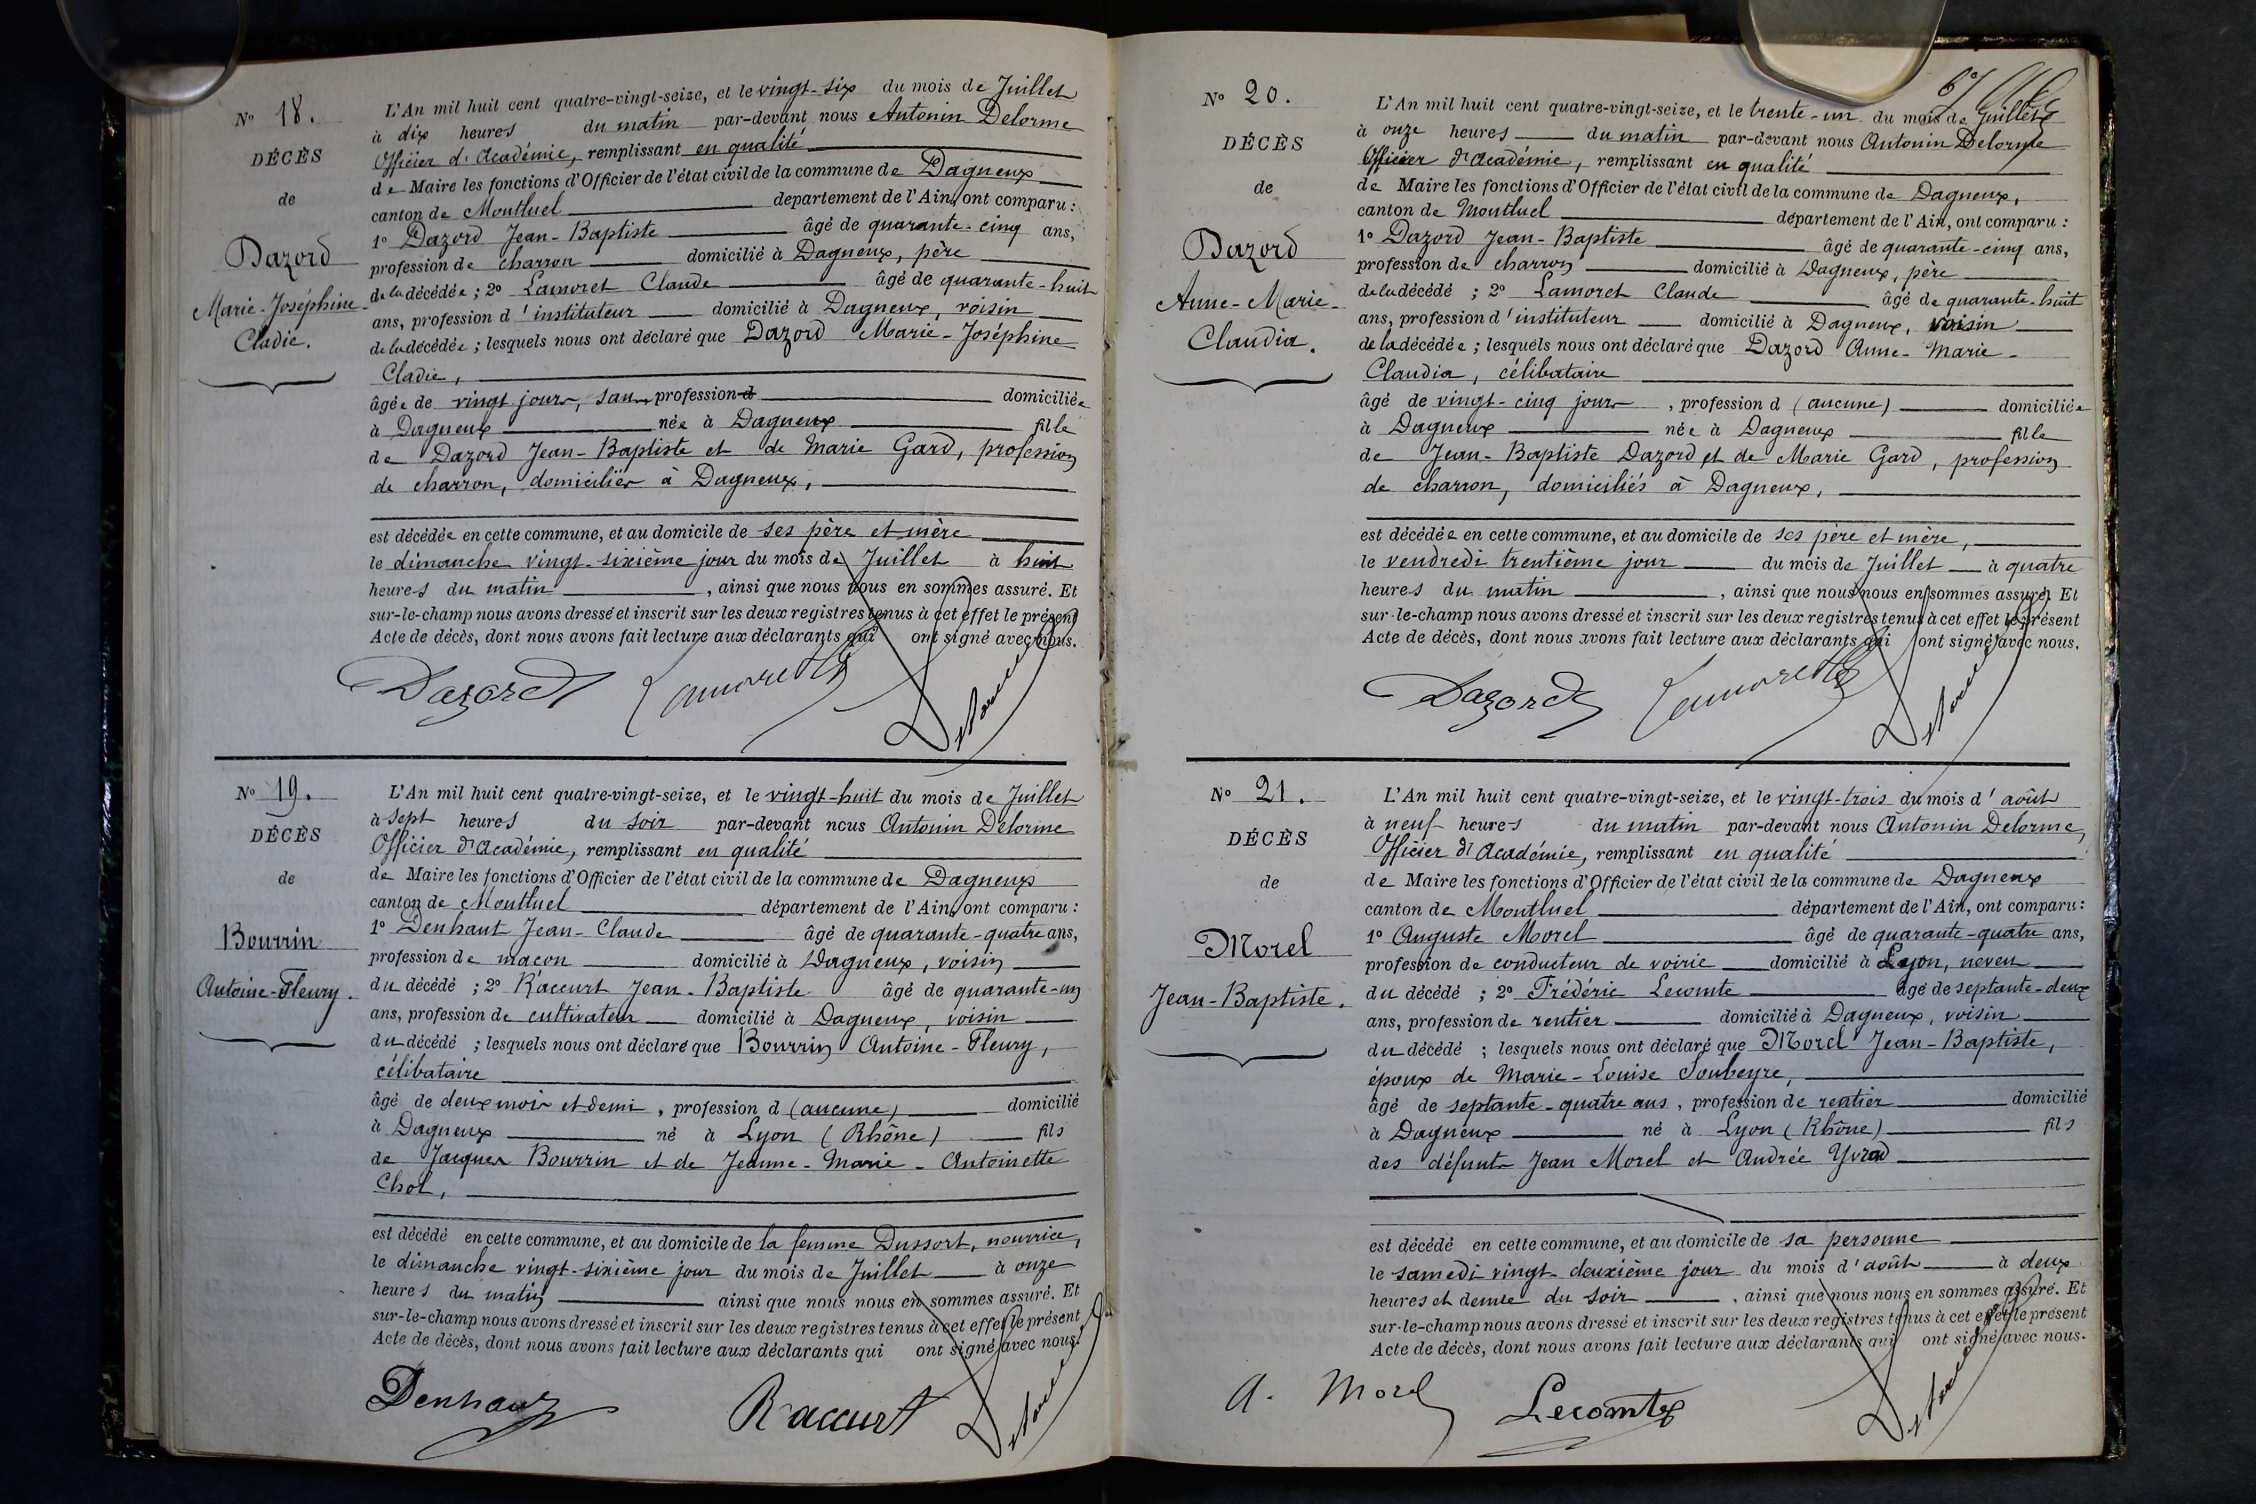 No 18.
DÉCÈS
de
Dazord
Marie-Joséphine-
Cladie.
L'An mil huit cent quatre-vingt-seize, et le vingt-six du mois de Juillet
à dix heures du matin par-devant nous Antonin Delorme
Officier d'Académie, remplissant en qualité
de Maire les fonctions d'Officier de l'état civil de la commune de Dagneux
canton de Montluel département de l'Ain, ont comparu :
1o Dazord Jean-Baptiste âgé de quarante-cinq ans,
profession de charron domicilié à Dagneux, père
de la décédée ; 2o Lamoret Claude âgé de quarante-huit
ans, profession d'instituteur domicilié à Dagneux, voisin
de la décédée ; lesquels nous ont déclaré que Dazord Marie-Joséphine
Cladie,
âgée de vingt jours, sans profession d domiciliée
à Dagneux née à Dagneux fille
de Dazord Jean-Baptiste et de Marie Gard, profession
de charron, domiciliés à Dagneux,
est décédée en cette commune, et au domicile de ses père et mère
le dimanche vingt-sixième jour du mois de Juillet à huit
heures du matin , ainsi que nous nous en sommes assuré. Et
sur-le-champ nous avons dressé et inscrit sur les deux registres tenus à cet effet le présent
Acte de décès, dont nous avons fait lecture aux déclarants qui ont signé avec nous.
Dazord Lamoret Delorme
No 19.
DÉCÈS
de
Bourrin
Antoine-Fleury.
L'An mil huit cent quatre-vingt-seize, et le vingt-huit du mois de Juillet
à sept heures du soir par-devant nous Antonin Delorme
Officier d'Académie, remplissant en qualité
de Maire les fonctions d'Officier de l'état civil de la commune de Dagneux
canton de Montluel département de l'Ain, ont comparu :
1o Denhaut Jean-Claude âgé de quarante-quatre ans,
profession de maçon domicilié à Dagneux, voisin
du décédé ; 2o Raccurt Jean-Baptiste âgé de quarante-un
ans, profession de cultivateur domicilié à Dagneux, voisin
du décédé ; lesquels nous ont déclaré que Bourrin Antoine-Fleury,
célibataire
âgé de deux mois et demi, profession d (aucune) domicilié
à Dagneux né à Lyon (Rhône) fils
de Jacques Bourrin et de Jeanne-Marie-Antoinette
Chol,
est décédé en cette commune, et au domicile de la femme Dussort, nourrice,
le dimanche vingt-sixième jour du mois de Juillet à onze
heures du matin ainsi que nous nous en sommes assuré. Et
sur-le-champ nous avons dressé et inscrit sur les deux registres tenus à cet effet le présent
Acte de décès, dont nous avons fait lecture aux déclarants qui ont signé avec nous.
Denhaut Raccurt Delorme
No 20.
DÉCÈS
de
Dazord
Anne-Marie-
Claudia.
L'An mil huit cent quatre-vingt-seize, et le trente-un du mois de Juillet
à onze heures du matin par-devant nous Antonin Delorme
Officier d'Académie, remplissant en qualité
de Maire les fonctions d'Officier de l'état civil de la commune de Dagneux,
canton de Montluel département de l'Ain, ont comparu :
1o Dazord Jean-Baptiste âgé de quarante-cinq ans,
profession de charron domicilié à Dagneux, père
de la décédé ; 2o Lamoret Claude âgé de quarante-huit
ans, profession d'instituteur domicilié à Dagneux, voisin
de la décédée ; lesquels nous ont déclaré que Dazord Anne-Marie-
Claudia, célibataire
âgé de vingt-cinq jours , profession d (aucune) domiciliée
à Dagneux née à Dagneux fille
de Jean-Baptiste Dazord et de Marie Gard, profession
de charron, domiciliés à Dagneux,
est décédée en cette commune, et au domicile de ses père et mère,
le vendredi trentième jour du mois de Juillet à quatre
heures du matin , ainsi que nous nous en sommes assuré. Et
sur-le-champ nous avons dressé et inscrit sur les deux registres tenus à cet effet le présent
Acte de décès, dont nous avons fait lecture aux déclarants qui ont signé avec nous.
Dazord Lamoret Delorme
No 21.
DÉCÈS
de
Morel
Jean-Baptiste.
L'An mil huit cent quatre-vingt-seize, et le vingt-trois du mois d'août
à neuf heures du matin par-devant nous Antonin Delorme,
Officier d'Académie, remplissant en qualité
de Maire les fonctions d'Officier de l'état civil de la commune de Dagneux
canton de Montluel département de l'Ain, ont comparu :
1o Auguste Morel âgé de quarante-quatre ans,
profession de conducteur de voirie domicilié à Lyon, neveu
du décédé ; 2o Frédéric Lecomte âgé de septante-deux
ans, profession de rentier domicilié à Dagneux, voisin
du décédé ; lesquels nous ont déclaré que Morel Jean-Baptiste,
époux de Marie-Louise Soubeyre,
âgé de septante-quatre ans, profession de rentier domicilié
à Dagneux né à Lyon (Rhône) fils
des défunts Jean Morel et Andrée Yvrad
est décédé en cette commune, et au domicile de sa personne
le samedi vingt-deuxième jour du mois d'août à deux
heures et demie du soir , ainsi que nous nous en sommes assuré. Et
sur-le-champ nous avons dressé et inscrit sur les deux registres tenus à cet effet le présent
Acte de décès, dont nous avons fait lecture aux déclarants qui ont signé avec nous.
A. Morel Lecomte Delorme